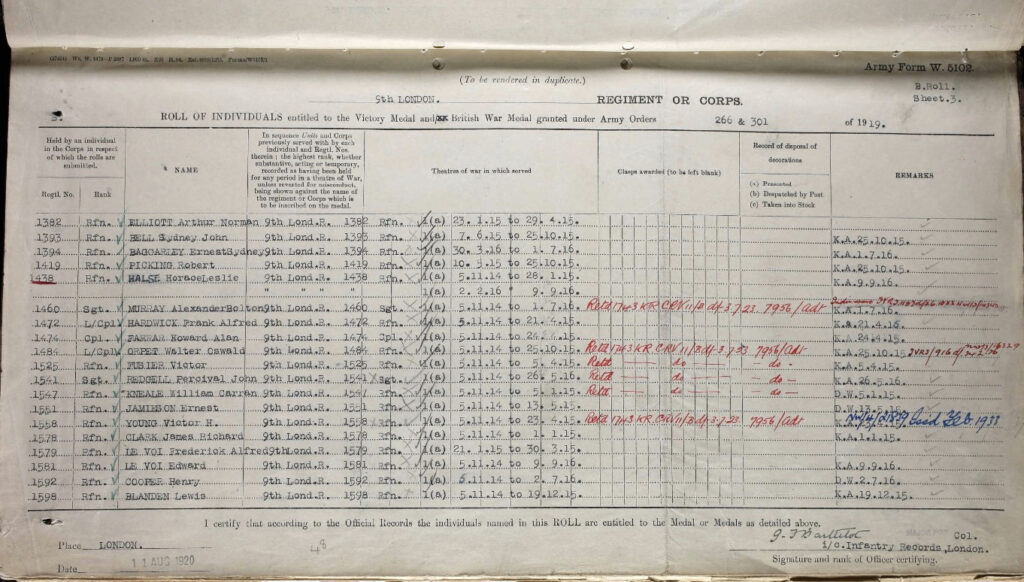 Army Form W. 5102.
(To be rendered in duplicate.)
B.Roll.
Sheet.3.
9th LONDON. REGIMENT OR CORPS.
3. ROLL OF INDIVIDUALS entitled to the Victory Medal and British War Medal granted under Army Orders 266 & 301 of 1919.
Held by an individual in the Corps in respect of which the rolls are submitted.
Regtl. No. Rank
NAME
In sequence Units and Corps previously served with by each individual and Regtl. Nos. therein; the highest rank, whether substantive, acting or temporary, recorded as having been held for any period in a theatre of War, unless reverted for misconduct, being shown against the name of the regiment or Corps which is to be inscribed on the medal.
Theatres of war in which served
Clasps awarded (to be left blank)
Record of disposal of decorations
(a) Presented
(b) Despatched by Post
(c) Taken into Stock
REMARKS
1382 Rfn. ELLIOTT Arthur Norman 9th Lond.R. 1382 Rfn. 1(a) 23. 1.15 to 29. 4.15.
1393 Rfn. BELL Sydney John 9th Lond.R. 1393 Rfn. 1(a) 7. 6.15 to 25.10.15. K.A.25.10.15.
1394 Rfn. BAGGARLEY ErnestSydney 9th Lond.R. 1394 Rfn. 1(a) 30. 3.16 to 1. 7.16. K.A.1.7.16.
1419 Rfn. PICKING Robert 9th Lond.R. 1419 Rfn. 1(a) 10. 5.15 to 25.10.15. K.A.25.10.15.
1438 Rfn. HALSE HoraceLeslie 9th Lond.R. 1438 Rfn. 1(a) 5.11.14 to 28. 1.15. K.A.9.9.16.
" " " " 1(a) 2. 2.16 " 9. 9.16.
1460 Sgt. MURRAY AlexanderBolton 9th Lond.R. 1460 Sgt. 1(a) 5.11.14 to 1. 7.16. Retd 1743 KR CRV 11/B df 3.7.23. 7956/Adt K.A.1.7.16.
1472 L/Cpl HARDWICK Frank Alfred 9th Lond.R. 1472 Rfn. 1(a) 5.11.14 to 21. 4.15. K.A.21.4.15.
1474 Cpl. FARRAR Howard Alan 9th Lond.R. 1474 Cpl. 1(a) 5.11.14 to 24. 4.15. K.A.24.4.15.
1484 L/Cpl ORPET Walter Oswald 9th Lond.R. 1484 Rfn. 1(a) 5.11.14 to 25.10.15. Retd 1743 KR CRV 11/B df 3.7.23 7956/Adt K.A.25.10.15
1525 Rfn. FUSIER Victor 9th Lond.R. 1525 Rfn. 1(a) 5.11.14 to 5. 4.15. Retd — do — - do - K.A.5.4.15.
1541 Sgt. REDGELL Percival John 9th Lond.R. 1541 Sgt. 1(a) 5.11.14 to 26. 5.16. Retd — do — - do - K.A.26.5.16.
1547 Rfn. KNEALE William Carran 9th Lond.R. 1547 Rfn. 1(a) 5.11.14 to 5. 1.15. Retd — do — - do - D.W.5.1.15.
1551 Rfn. JAMIESON Ernest 9th Lond.R. 1551 Rfn. 1(a) 5.11.14 to 13. 5.15.
1558 Rfn. YOUNG Victor H. 9th Lond.R. 1558 Rfn. 1(a) 5.11.14 to 23. 4.15. Retd 1743 KR CRV 11/B df 3.7.23. 7956/Adt Issd Feb. 1933
1578 Rfn. CLARK James Richard 9th Lond.R. 1578 Rfn. 1(a) 5.11.14 to 1. 1.15. K.A.1.1.15.
1579 Rfn. LE VOI Frederick Alfred 9thLond.R. 1579 Rfn. 1(a) 21. 1.15 to 30. 3.15.
1581 Rfn. LE VOI Edward 9th Lond.R. 1581 Rfn. 1(a) 5.11.14 to 9. 9.16. K.A.9.9.16.
1592 Rfn. COOPER Henry 9th Lond.R. 1592 Rfn. 1(a) 5.11.14 to 2. 7.16. D.W.2.7.16.
1598 Rfn. BLANDEN Lewis 9th Lond.R. 1598 Rfn. 1(a) 5.11.14 to 19.12.15. K.A.19.12.15.
I certify that according to the Official Records the individuals named in this ROLL are entitled to the Medal or Medals as detailed above.
Place LONDON. 48 Col.
i/c.Infantry Records,London.
Date 11 AUG 1920 Signature and rank of Officer certifying.